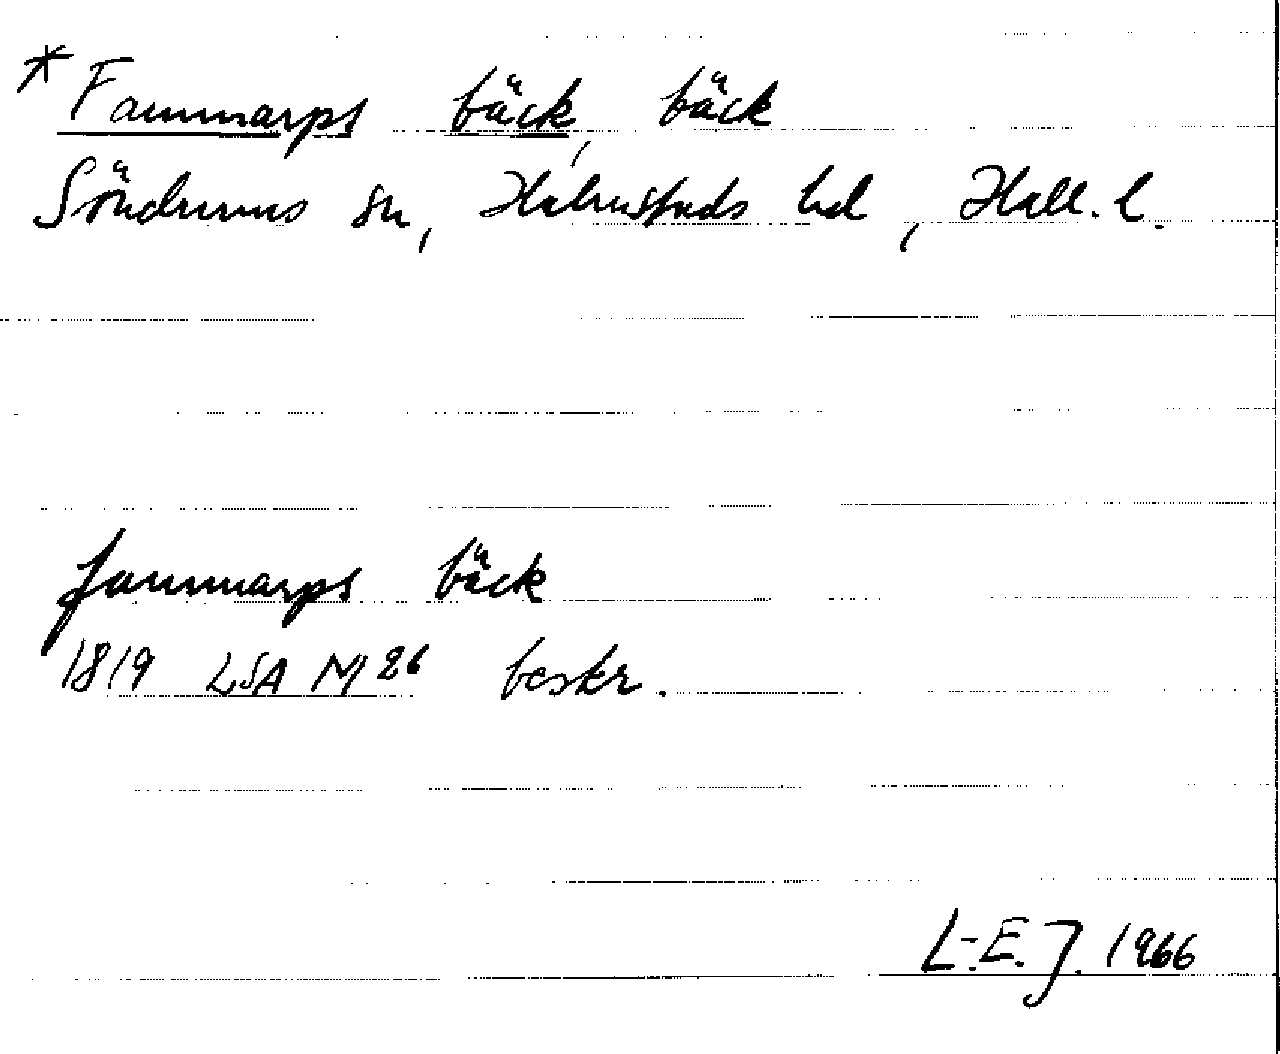 * Fammarps bäck, bäck
Söndrums sn, Halmstads hd, Hall. l.
fammarps bäck
1819 LSA N 26 beskr.
L.-E. J. 1966